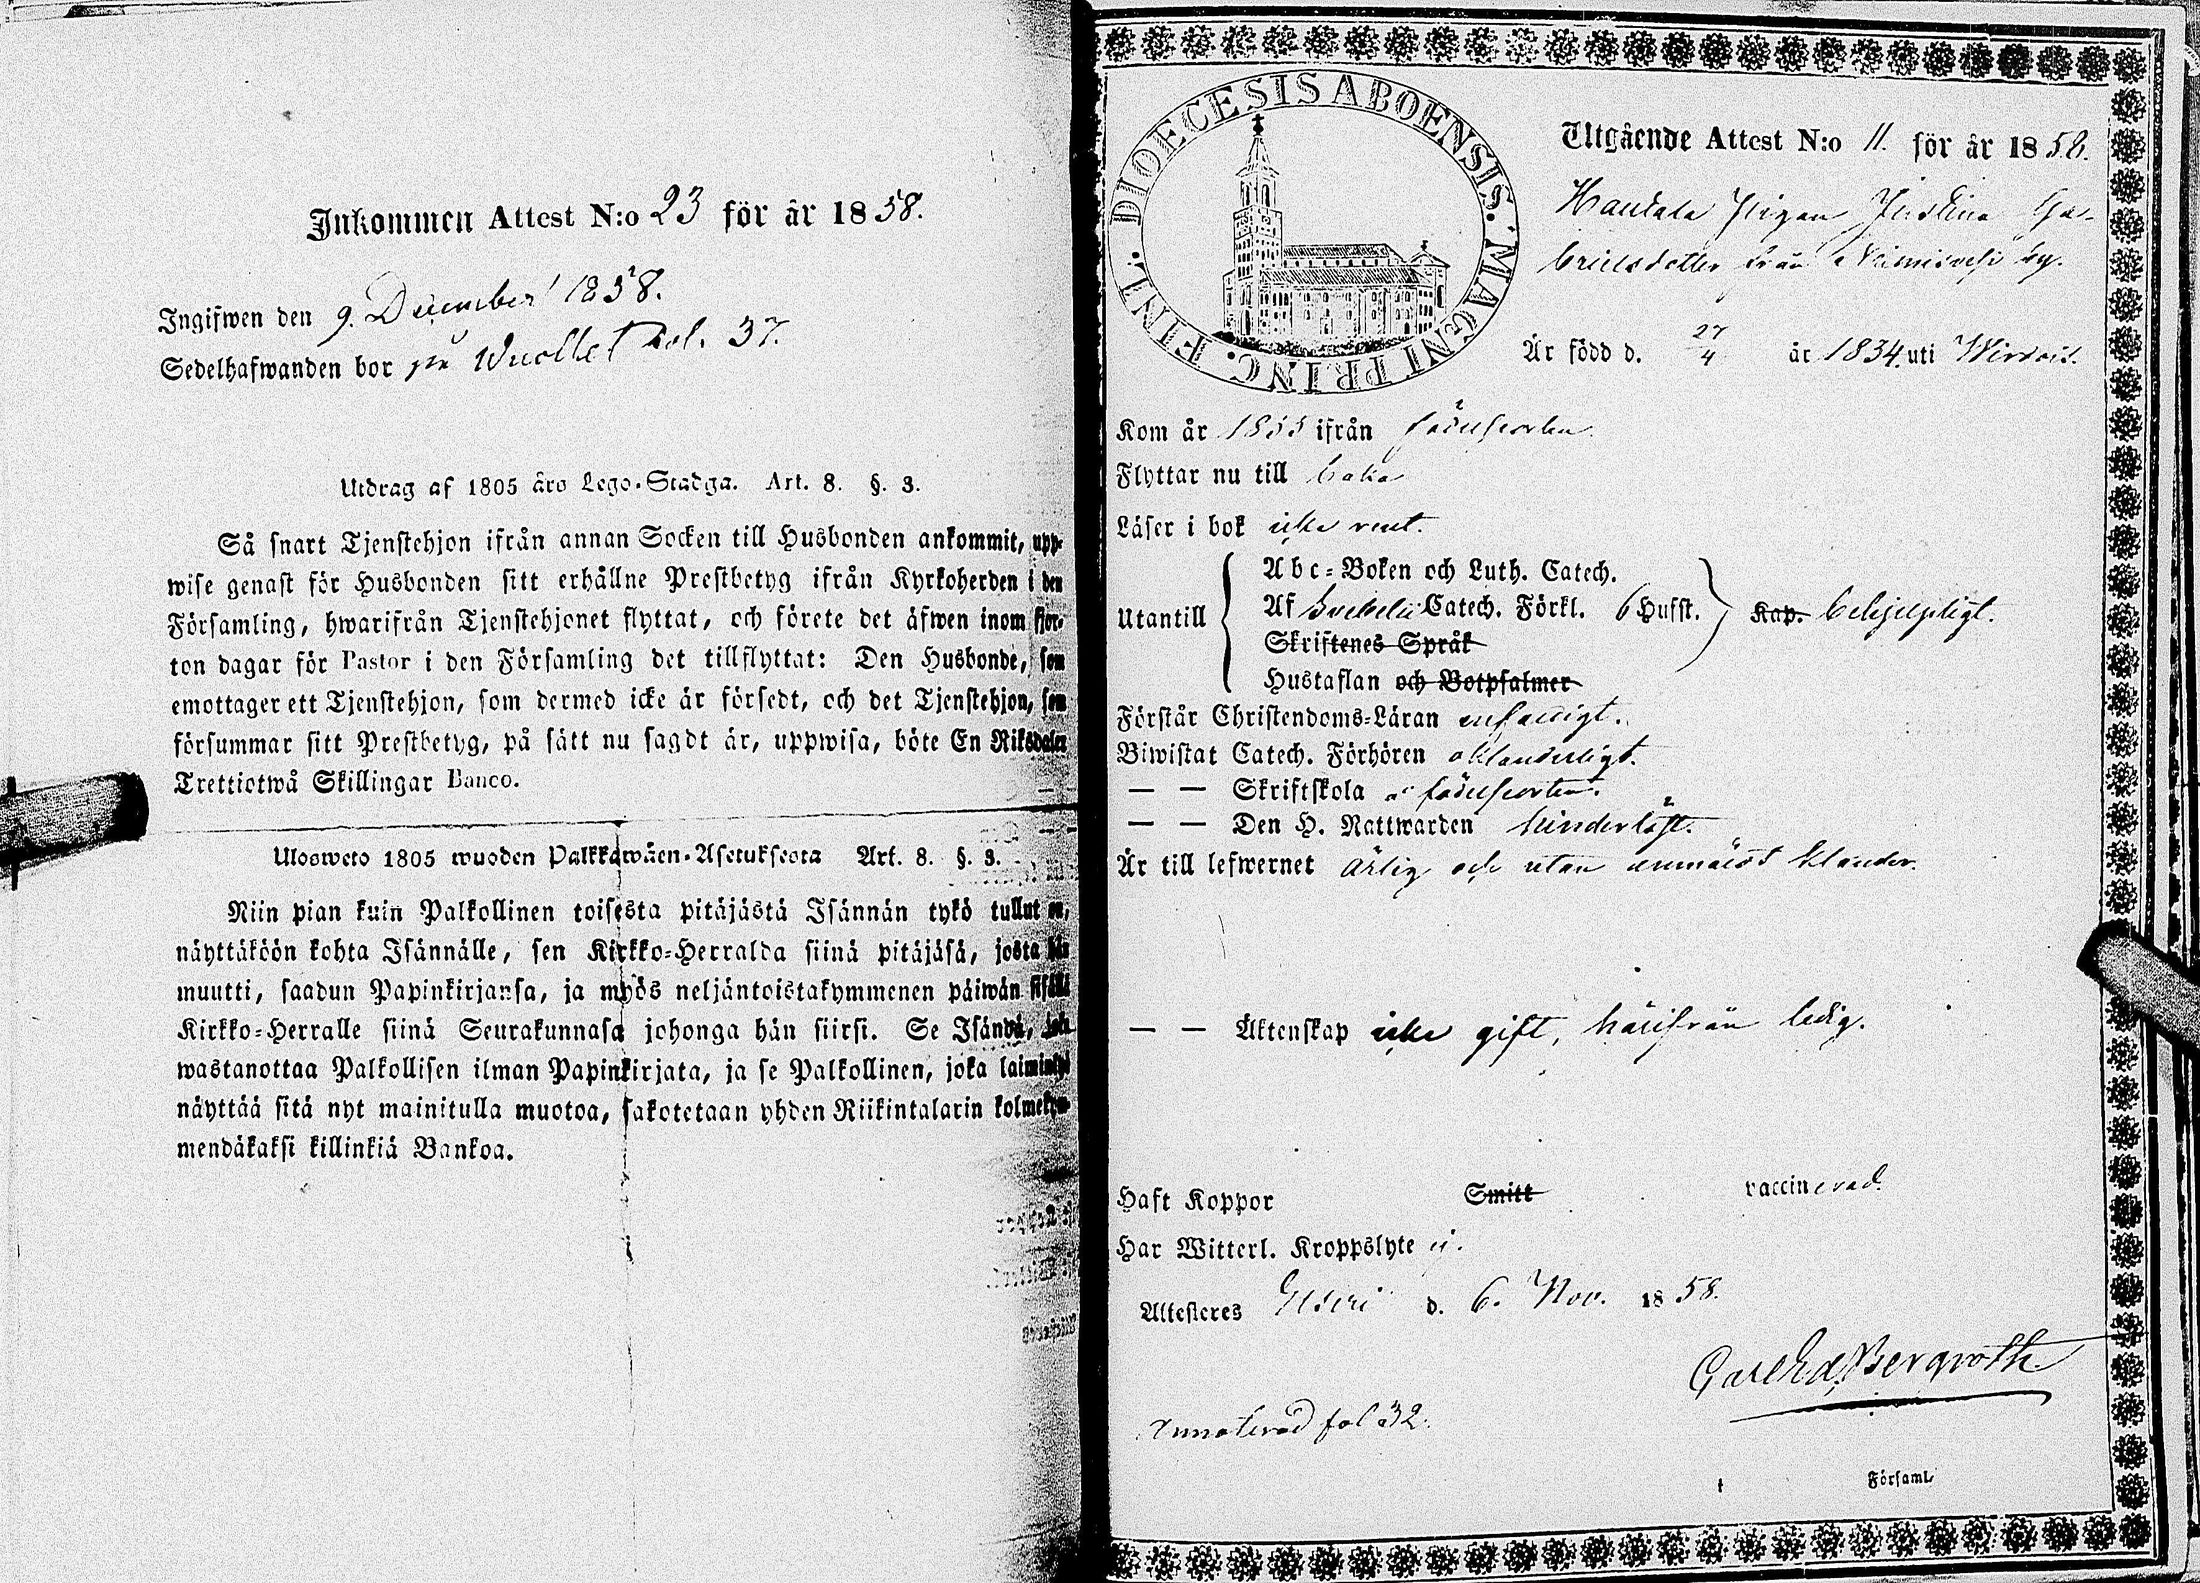 Inkommen Attest N:o 23 för år 1858.
Ingifwen den 9. December 1858.
Sedelhafwanden bor på Wuollet Fol. 37.
Utdrag af 1805 års Lego-Stadga. Art. 8. §. 3.
Så snart Tjenstehjon ifrån annan Socken till Husbonden ankommit, upp-
wise genast för Husbonden sitt erhållne Prestbetyg ifrån Kyrkoherden i den
Församling, hwarifrån Tjenstehjonet flyttat, och förete det äfwen inom fjor-
ton dagar för Pastor i den Församling det tillflyttat: Den Husbonde, som
emottager ett Tjenstehjon, som dermed icke är försedt, och det Tjenstehjon, som
försummar sitt Prestbetyg, på sätt nu sagdt är, uppwisa, böte En Riksdaler
Trettiotwå Skillingar Banco.
Ulosweto 1805 wuoden Palkkawäen-Asetuksesta Art. 8. §. 3.
Niin pian kuin Palkollinen toisesta pitäjästä Isännän tykö tullut on,
näyttäköön kohta Isännälle, sen Kirkko-Herralda siinä pitäjäsä, josta hän
muutti, saadun Papinkirjansa, ja myös neljäntoistakymmenen päiwän sisällä
Kirkko-Herralle siinä Seurakunnasa johonga hän siirsi. Se Isändä, joka
wastanottaa Palkollisen ilman Papinkirjata, ja se Palkollinen, joka laiminlyö
näyttää sitä nyt mainitulla muotoa, sakotetaan yhden Riikintalarin kolmekym-
mendäkaksi killinkiä Bankoa.
DIOECESIS ABOENSIS. MAGNI PRINC. FINL.
Utgående Attest N:o 11. för år 1858.
Pigan Justina Ga-
brielsdotter från Niemisvesi by.
Är född d. 27/4 år 1834 uti Wirdois.
Kom år 1855 ifrån födelseorten.
Flyttar nu till
Läser i bok icke rent.
Utantill
Abc-Boken och Luth. Catech.
Af Svebelii Catech. Förkl. 6 Hufst.
Skriftenes Språk
Hustaflan och Botpsalmer
Kap. behjelpligt.
Förstår Christendoms-Läran enfaldigt.
Biwistat Catech. Förhören oklanderligt.
— — Skriftskola i födelseorten.
— — Den H. Nattwarden hinderlöst.
Är till lefwernet ärlig och utan anmäldt klander.
— — Äktenskap icke gift, härifrån ledig.
Haft Koppor Smitt vaccinerad.
Har Witterl. Kroppslyte ej.
Attesteres Etseri d. 6. Nov. 1858.
Carl Ed. Bergroth
Annoterad fol 32.
Församl.